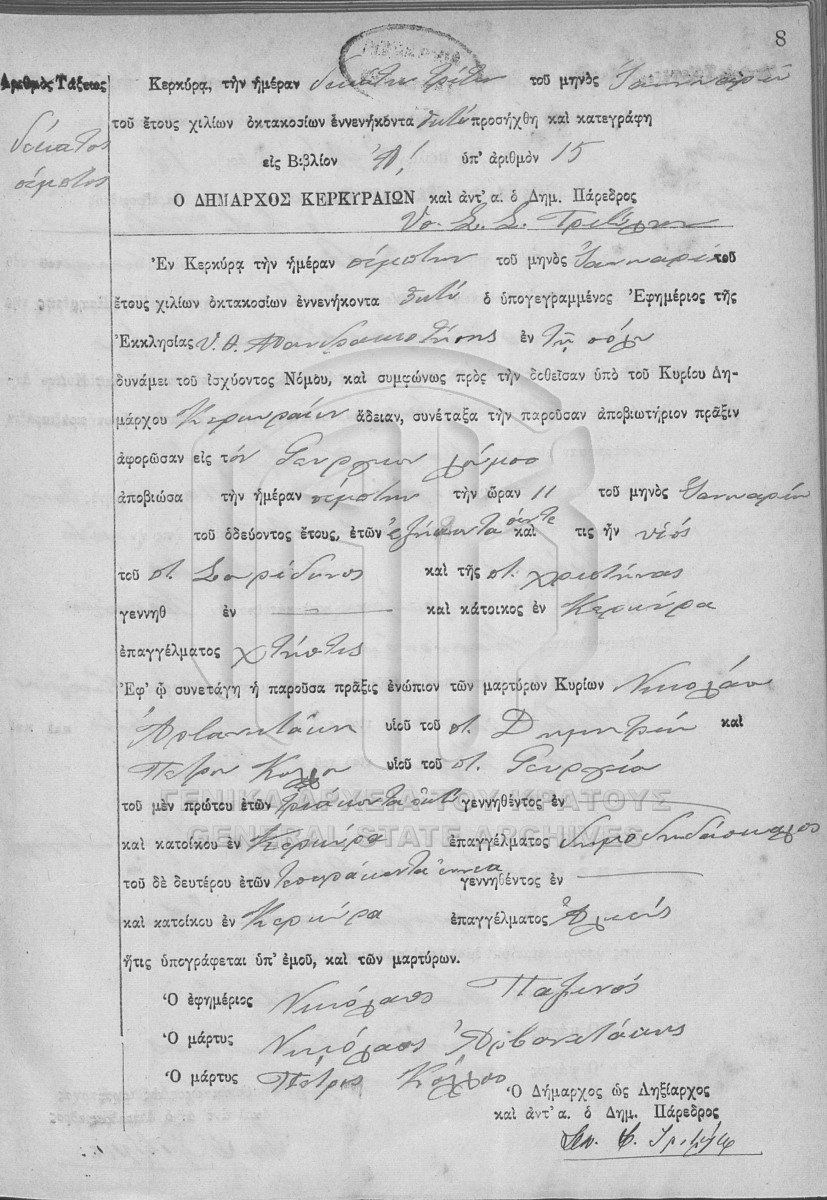 8
Ἀριθμὸς Τάξεως
δέκατος
πέμπτος
Κερκύρᾳ, τὴν ἡμέραν δεκάτην τρίτην τοῦ μηνὸς Ἰανουαρίου
τοῦ ἔτους χιλίων ὀκτακοσίων ἐννενήκοντα ὀκτώ προσήχθη καὶ κατεγράφη
εἰς Βιβλίον ὑπ' ἀριθμὸν 15
Ο ΔΗΜΑΡΧΟΣ ΚΕΡΚΥΡΑΙΩΝ καὶ ἀντ' α. ὁ Δημ. Πάρεδρος
Ἐν Κερκύρᾳ τὴν ἡμέραν πέμπτην τοῦ μηνὸς Ἰανουαρίου τοῦ
ἔτους χιλίων ὀκτακοσίων ἐννενήκοντα ὀκτώ ὁ ὑπογεγραμμένος Ἐφημέριος τῆς
Ἐκκλησίας Υ. Θ. Μανδρακιωτίσης ἐν τῇ πόλει
δυνάμει τοῦ ἰσχύοντος Νόμου, καὶ συμφώνως πρὸς τὴν δοθεῖσαν ὑπὸ τοῦ Κυρίου Δη-
μάρχου Κερκυραίων ἄδειαν, συνέταξα τὴν παροῦσαν ἀποβιωτήριον πρᾶξιν
ἀφορῶσαν εἰς τόν Γεώργιον
ἀποβιώσα τὴν ἡμέραν πέμπτην τὴν ὥραν 11 τοῦ μηνὸς Ἰανουαρίου
τοῦ ὁδεύοντος ἔτους, ἐτῶν ἑξήκοντα πέντε καὶ τις ἦν υἱός
τοῦ π. Σπυρίδωνος καὶ τῆς π. Χριστίνας
γεννηθ ἐν — καὶ κάτοικος ἐν Κερκύρᾳ
ἐπαγγέλματος κτίστης
Ἐφ' ᾧ συνετάγη ἡ παροῦσα πρᾶξις ἐνώπιον τῶν μαρτύρων Κυρίων Νικολάου
Ἀρβανιτάκη υἱοῦ τοῦ π. Δημητρίου καὶ
Πέτρου Κόλλα υἱοῦ τοῦ π. Γεωργίου
τοῦ μὲν πρώτου ἐτῶν τριάκοντα ὀκτώ γεννηθέντος ἐν —
καὶ κατοίκου ἐν Κερκύρᾳ ἐπαγγέλματος δημοδιδάσκαλος
τοῦ δὲ δευτέρου ἐτῶν τεσσαράκοντα ἐννέα γεννηθέντος ἐν —
καὶ κατοίκου ἐν Κερκύρᾳ ἐπαγγέλματος ἁλιεύς
ἥτις ὑπογράφεται ὑπ' ἐμοῦ, καὶ τῶν μαρτύρων.
Ὁ ἐφημέριος Νικόλαος Παξινός
Ὁ μάρτυς Νικόλαος Ἀρβανιτάκης
Ὁ μάρτυς Πέτρος
Ὁ Δήμαρχος ὡς Ληξίαρχος
καὶ ἀντ' α. ὁ Δημ. Πάρεδρος
ΓΕΝΙΚΑ ΑΡΧΕΙΑ ΤΟΥ ΚΡΑΤΟΥΣ
GENERAL STATE ARCHIVES